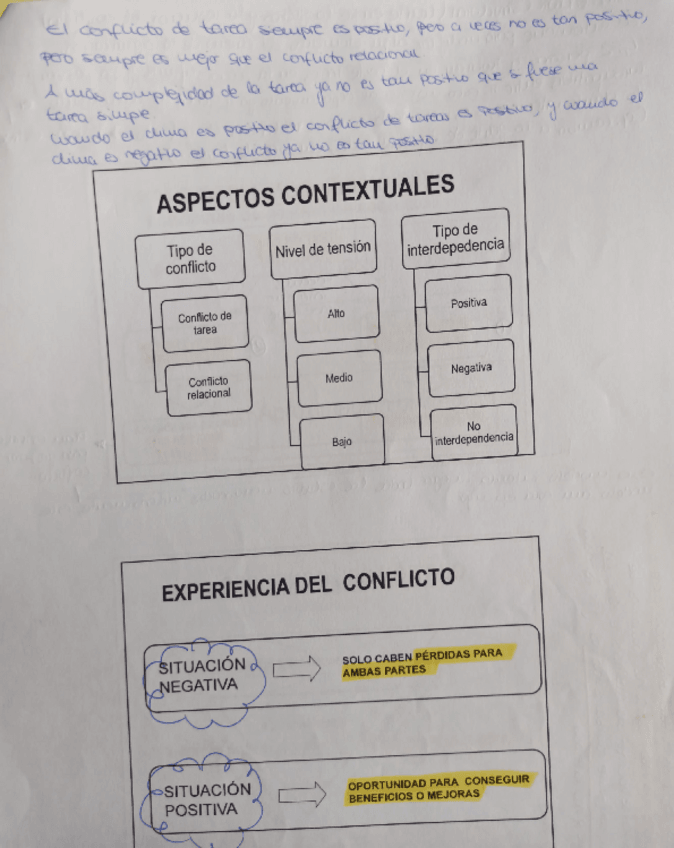 El conflicto de tarea sempre es positivo, pero a veces no es tan positivo,
pero siempre es mejor que el conflicto relacional
A más complejidad de la tarea ya no es tan positivo que si fuese una
tarea simpe.
Cuando el clima es positivo el conflicto de tareas es positivo, y cuando el
clima es negativo el conflicto ya no es tan positivo
ASPECTOS CONTEXTUALES
Tipo de
conflicto
Nivel de tensión
Tipo de
interdepedencia
Conflicto de
tarea
Alto
Positiva
Conflicto
relacional
Medio
Negativa
Bajo
No
interdependencia
EXPERIENCIA DEL CONFLICTO
SITUACIÓN
NEGATIVA
SOLO CABEN PÉRDIDAS PARA
AMBAS PARTES
SITUACIÓN
POSITIVA
OPORTUNIDAD PARA CONSEGUIR
BENEFICIOS O MEJORAS